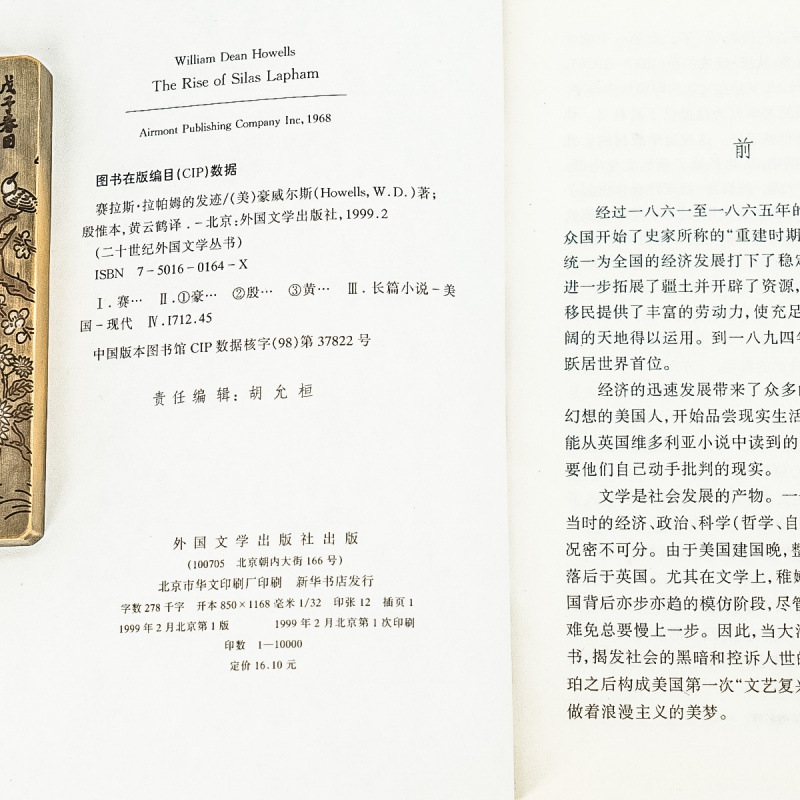 戊子春日
William Dean Howells
The Rise of Silas Lapham
Airmont Publishing Company Inc, 1968
图书在版编目(CIP)数据
赛拉斯·拉帕姆的发迹/(美)豪威尔斯(Howells, W.D.)著;
殷惟本,黄云鹤译.－北京:外国文学出版社,1999.2
(二十世纪外国文学丛书)
ISBN 7－5016－0164－X
Ⅰ.赛… Ⅱ.①豪… ②殷… ③黄… Ⅲ.长篇小说－美
国－现代 Ⅳ.I712.45
中国版本图书馆 CIP 数据核字(98)第 37822 号
责任编辑:胡允桓
外国文学出版社出版
(100705 北京朝内大街 166 号)
北京市华文印刷厂印刷 新华书店发行
字数 278 千字 开本 850×1168 毫米 1/32 印张 12 插页 1
1999 年 2 月北京第 1 版 1999 年 2 月北京第 1 次印刷
印数 1—10000
定价 16.10 元
前
经过一八六一至一八六五年的
众国开始了史家所称的“重建时期
统一为全国的经济发展打下了稳定
进一步拓展了疆土并开辟了资源,
移民提供了丰富的劳动力,使充足
阔的天地得以运用。到一八九四年
跃居世界首位。
经济的迅速发展带来了众多的
幻想的美国人,开始品尝现实生活
能从英国维多利亚小说中读到的
要他们自己动手批判的现实。
文学是社会发展的产物。一
当时的经济、政治、科学(哲学、自
况密不可分。由于美国建国晚,整
落后于英国。尤其在文学上,稚嫩
国背后亦步亦趋的模仿阶段,尽管
难免总要慢上一步。因此,当大
书,揭发社会的黑暗和控诉人世的
珀之后构成美国第一次“文艺复兴
做着浪漫主义的美梦。